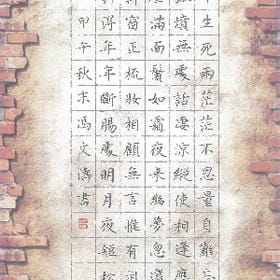 生死兩茫茫不思量自難忘
墳無處話淒涼縱使相逢應
滿面鬢如霜夜來幽夢忽還
窗正梳妝相顧無言惟有
得年年斷腸處明月夜短松
甲午秋末馮文濤書